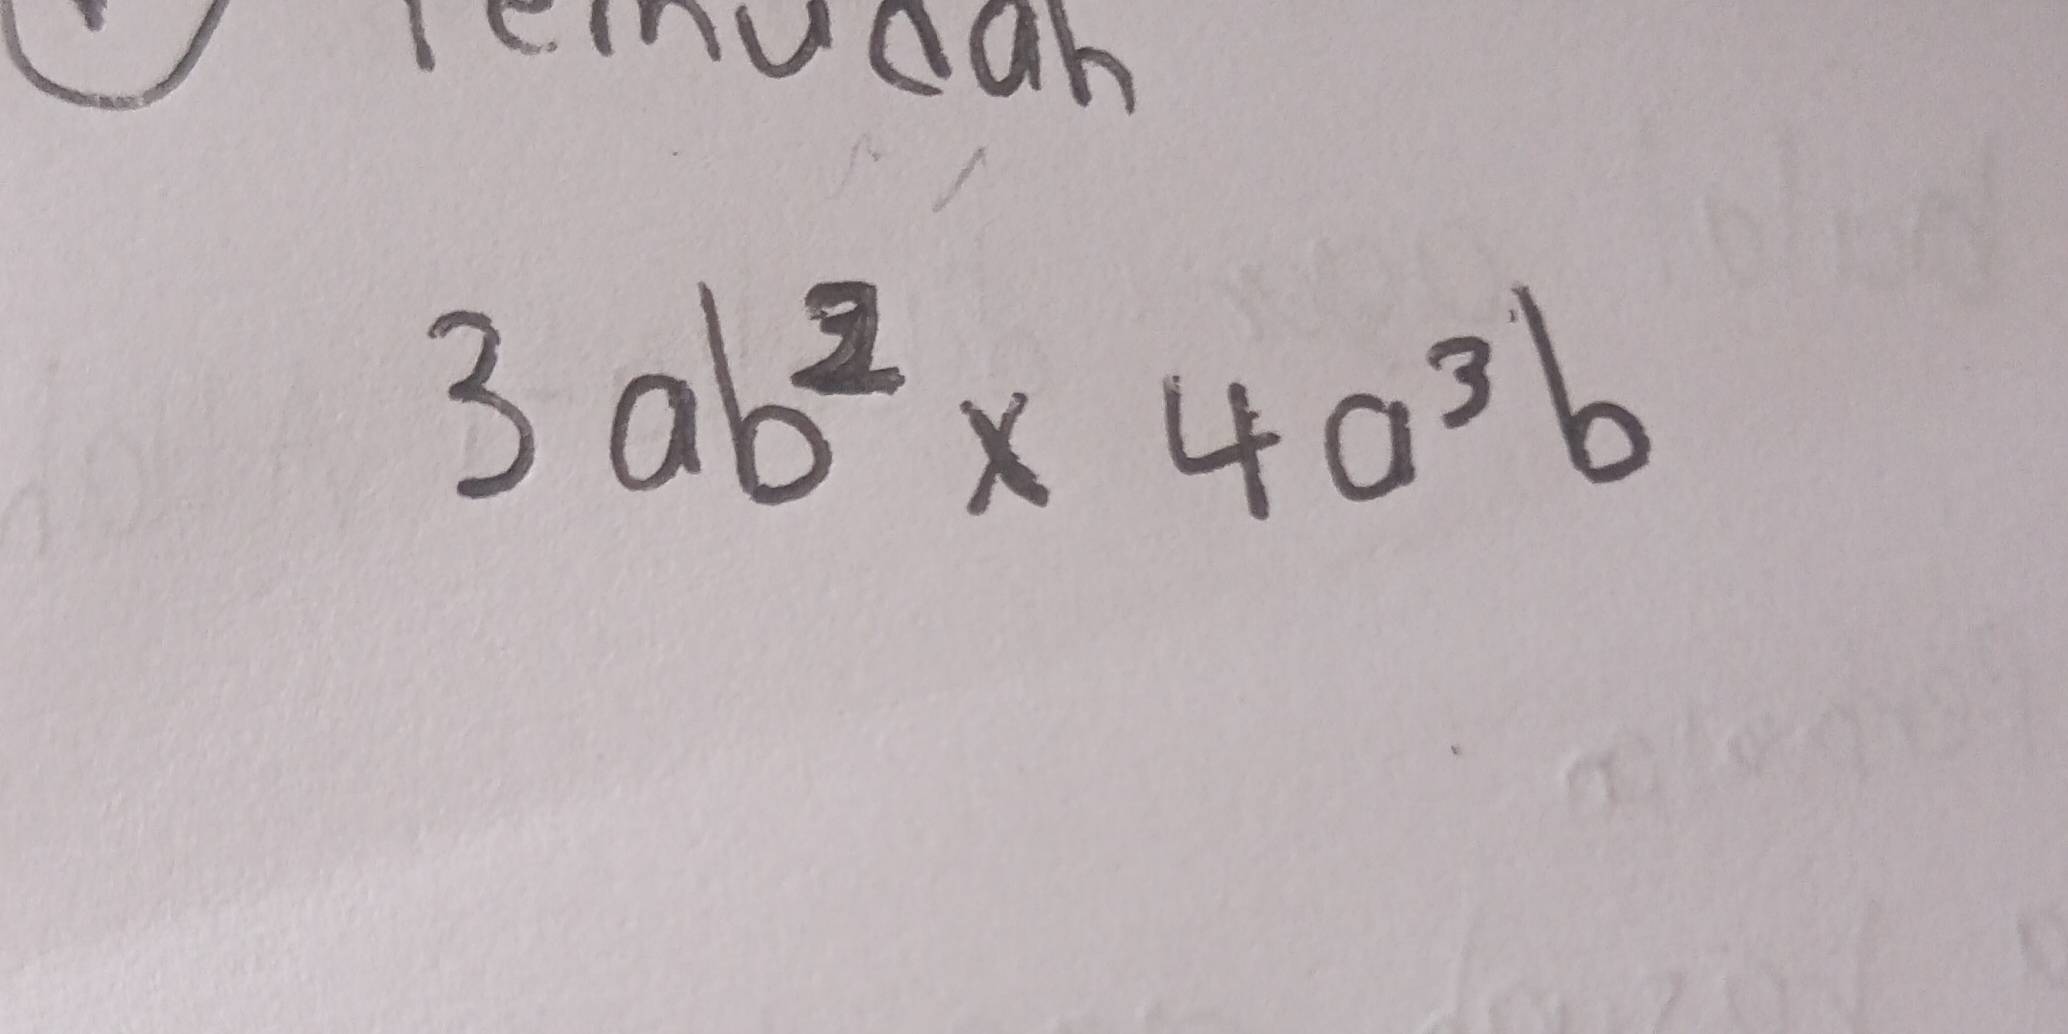 Temudah
3ab² x 4a³b